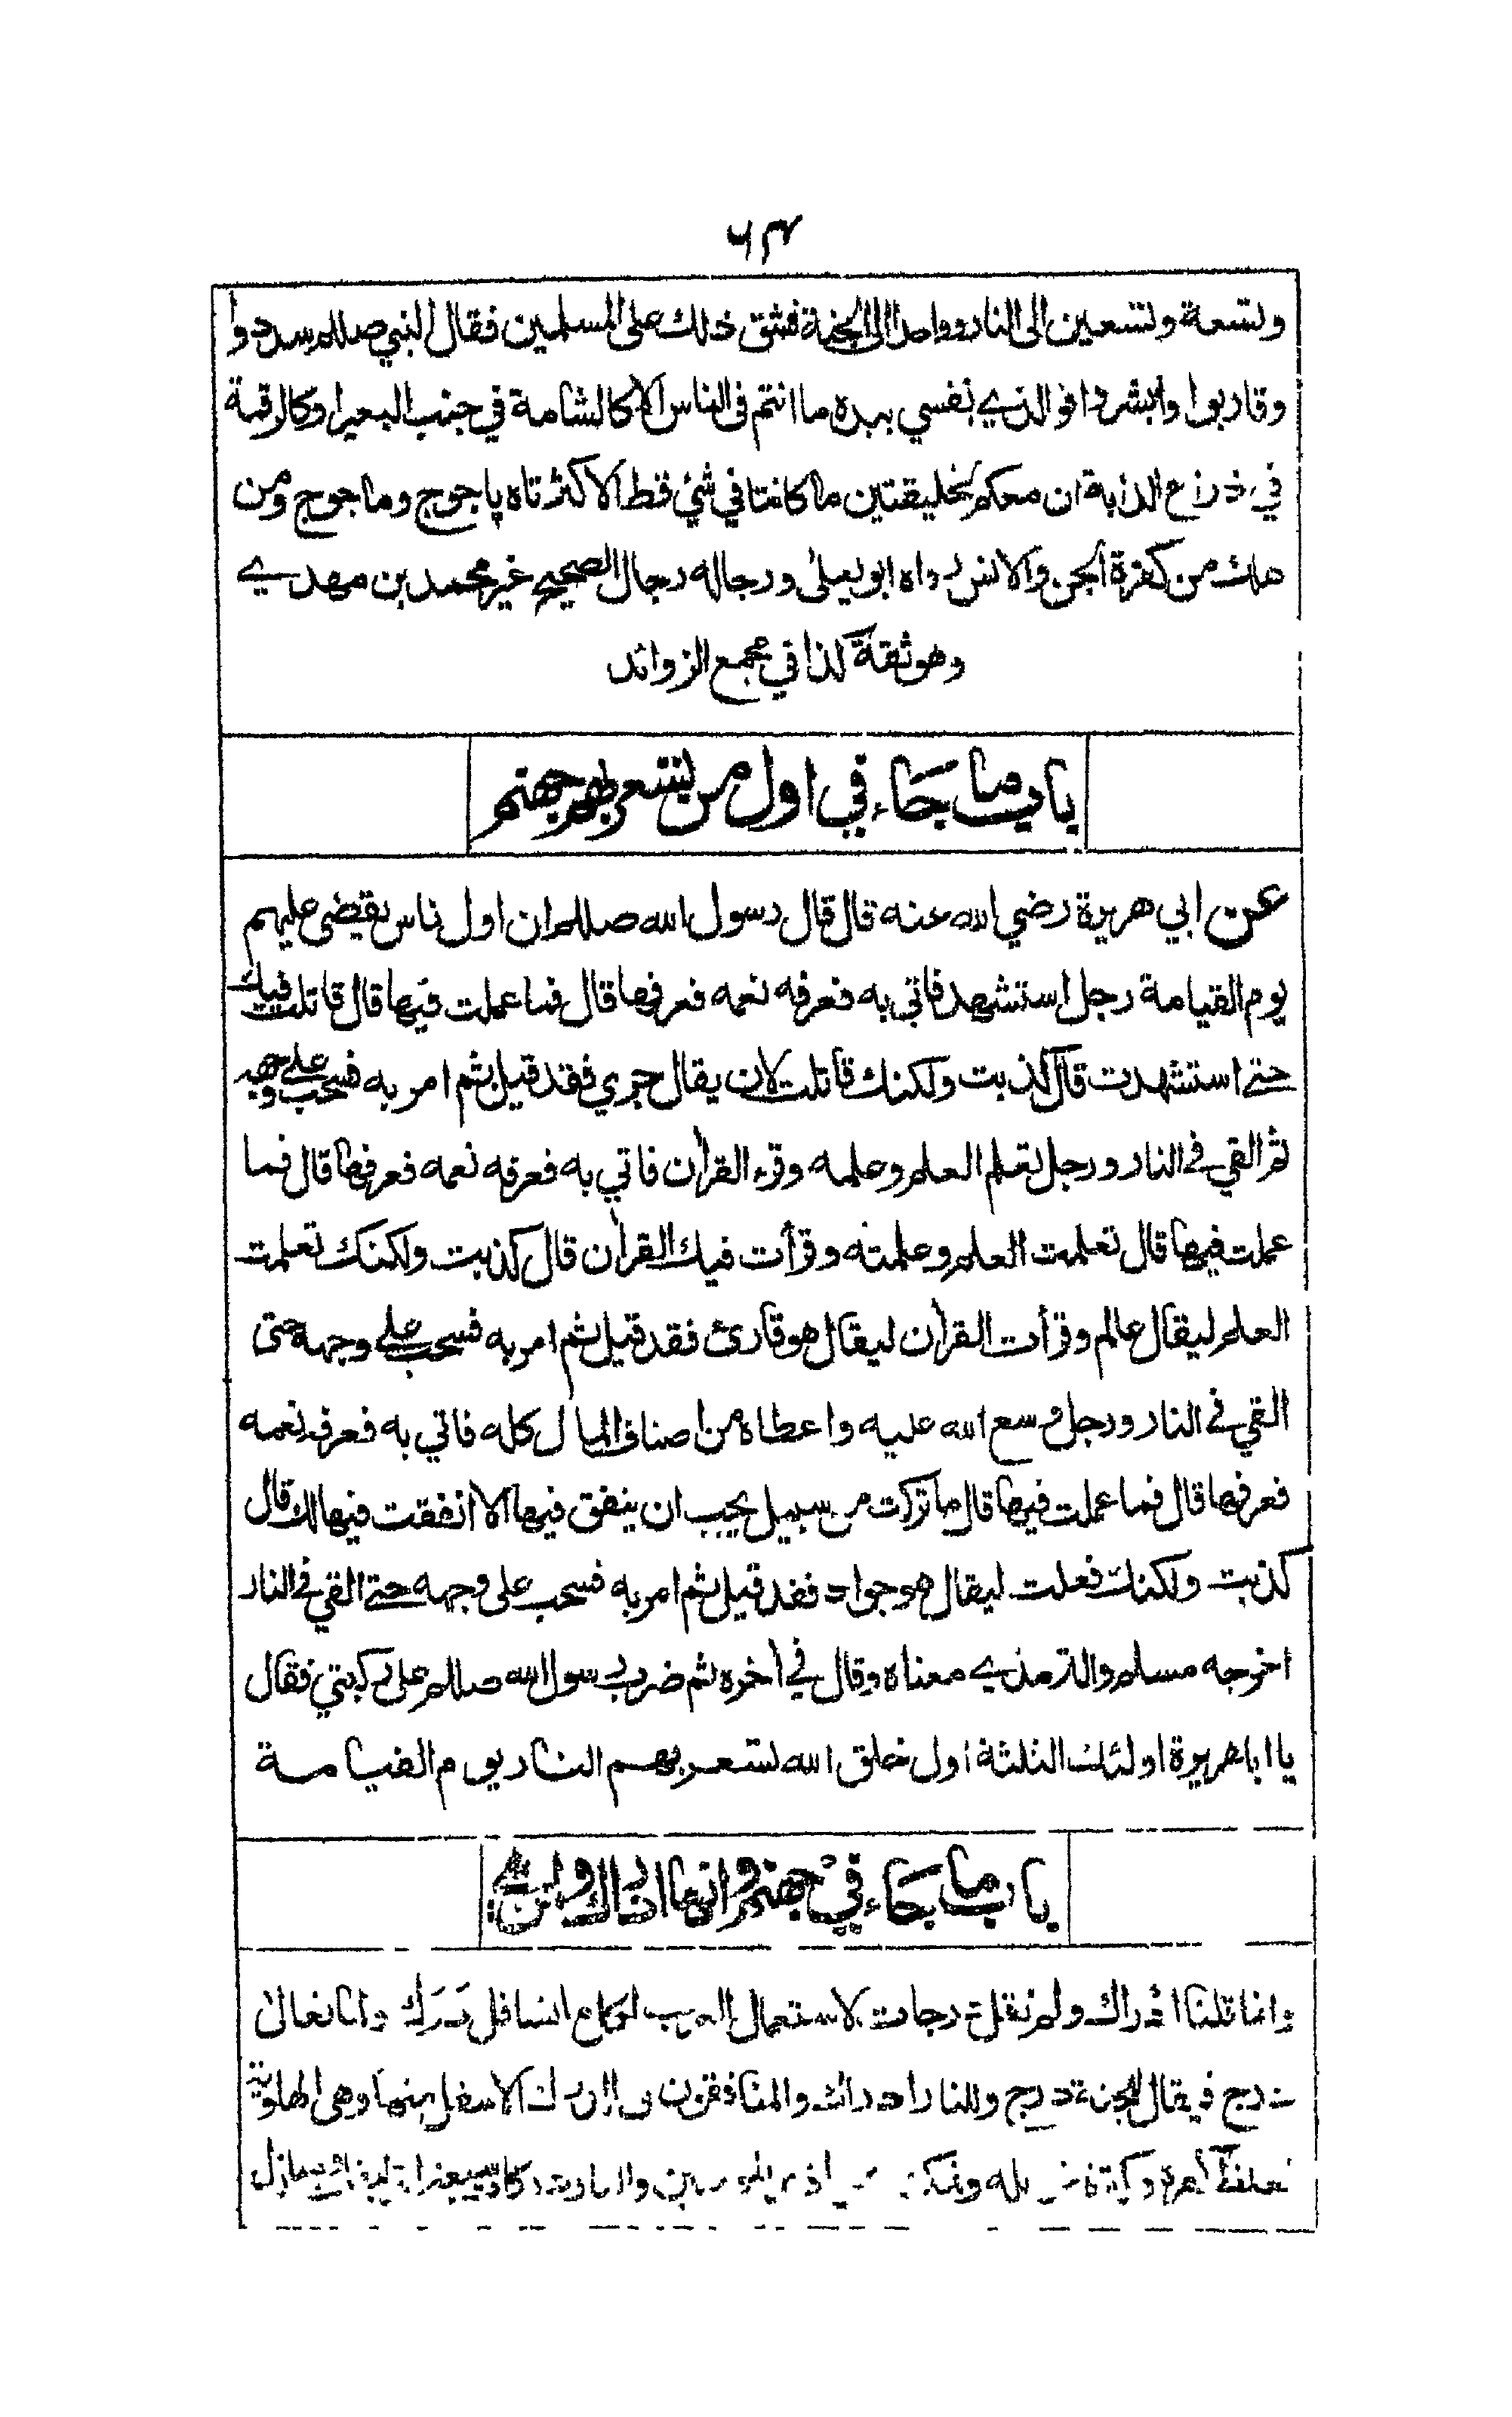 ٦٣
وتسعة وتسعين الى النار وواحدا الى الجنة فشق ذلك على المسلمين فقال النبي صللم سددوا
وقاربوا وابشروا فوالذي نفسي بيده ما انتم فى الناس الا كالشامة في جنب البعير او كالرقمة
في ذراع الدابة ان معكم لخليقتين ما كانتا في شئ قط الا كثرتاه ياجوج وماجوج ومن
هلك من كفرة الجن والانس رواه ابو يعلى ورجاله رجال الصحيح غير محمد بن مهدي
وهو ثقة كذا في مجمع الزوائد
باب ما جاء في اول من تسعر بهم جهنم
عن ابي هريرة رضي الله عنه قال قال رسول الله صللم ان اول ناس يقضى عليهم
يوم القيامة رجل استشهد فاتي به فعرفه نعمه فعرفها قال فما عملت فيها قال قاتلت فيك
حتى استشهدت قال كذبت ولكنك قاتلت لان يقال جري فقد قيل ثم امر به فسحب على وجهه
ثم القي في النار ورجل تعلم العلم وعلمه وقرء القرأن فاتي به فعرفه نعمه فعرفها قال فما
عملت فيها قال تعلمت العلم وعلمته وقرأت فيك القرأن قال كذبت ولكنك تعلمت
العلم ليقال عالم وقرأت القرأن ليقال هو قارئ فقد قيل ثم امر به فسحب على وجهه حتى
القي في النار ورجل وسع الله عليه واعطاه من اصناف المال كله فاتي به فعرفه نعمه
فعرفها قال فما عملت فيها قال ما تركت من سبيل يحب ان ينفق فيها الا انفقت فيها لك قال
كذبت ولكنك فعلت ليقال هو جواد فقد قيل ثم امر به فسحب على وجهه حتى القي في النار
اخرجه مسلم والترمذي معناه وقال في أخره ثم ضرب رسول الله صللم على ركبتي فقال
يا ابا هريرة اولئك الثلثة اول خلق الله تسعر بهم النار يوم القيامة
باب ما جاء في جهنم وانها ادراك ولمن هي
وانما قلنا ادراك ولم نقل درجات لاستعمال العرب لكل ما تسافل درك ولما تعالى
درج فيقال للجنة درج وللنار ادراك والمنافقون فى الدرك الاسفل منها وهي الهاوية
لغلظ كفرهم وكثرة